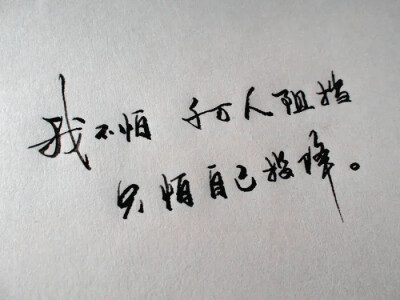 我不怕 千万人阻挡
只怕自己投降。